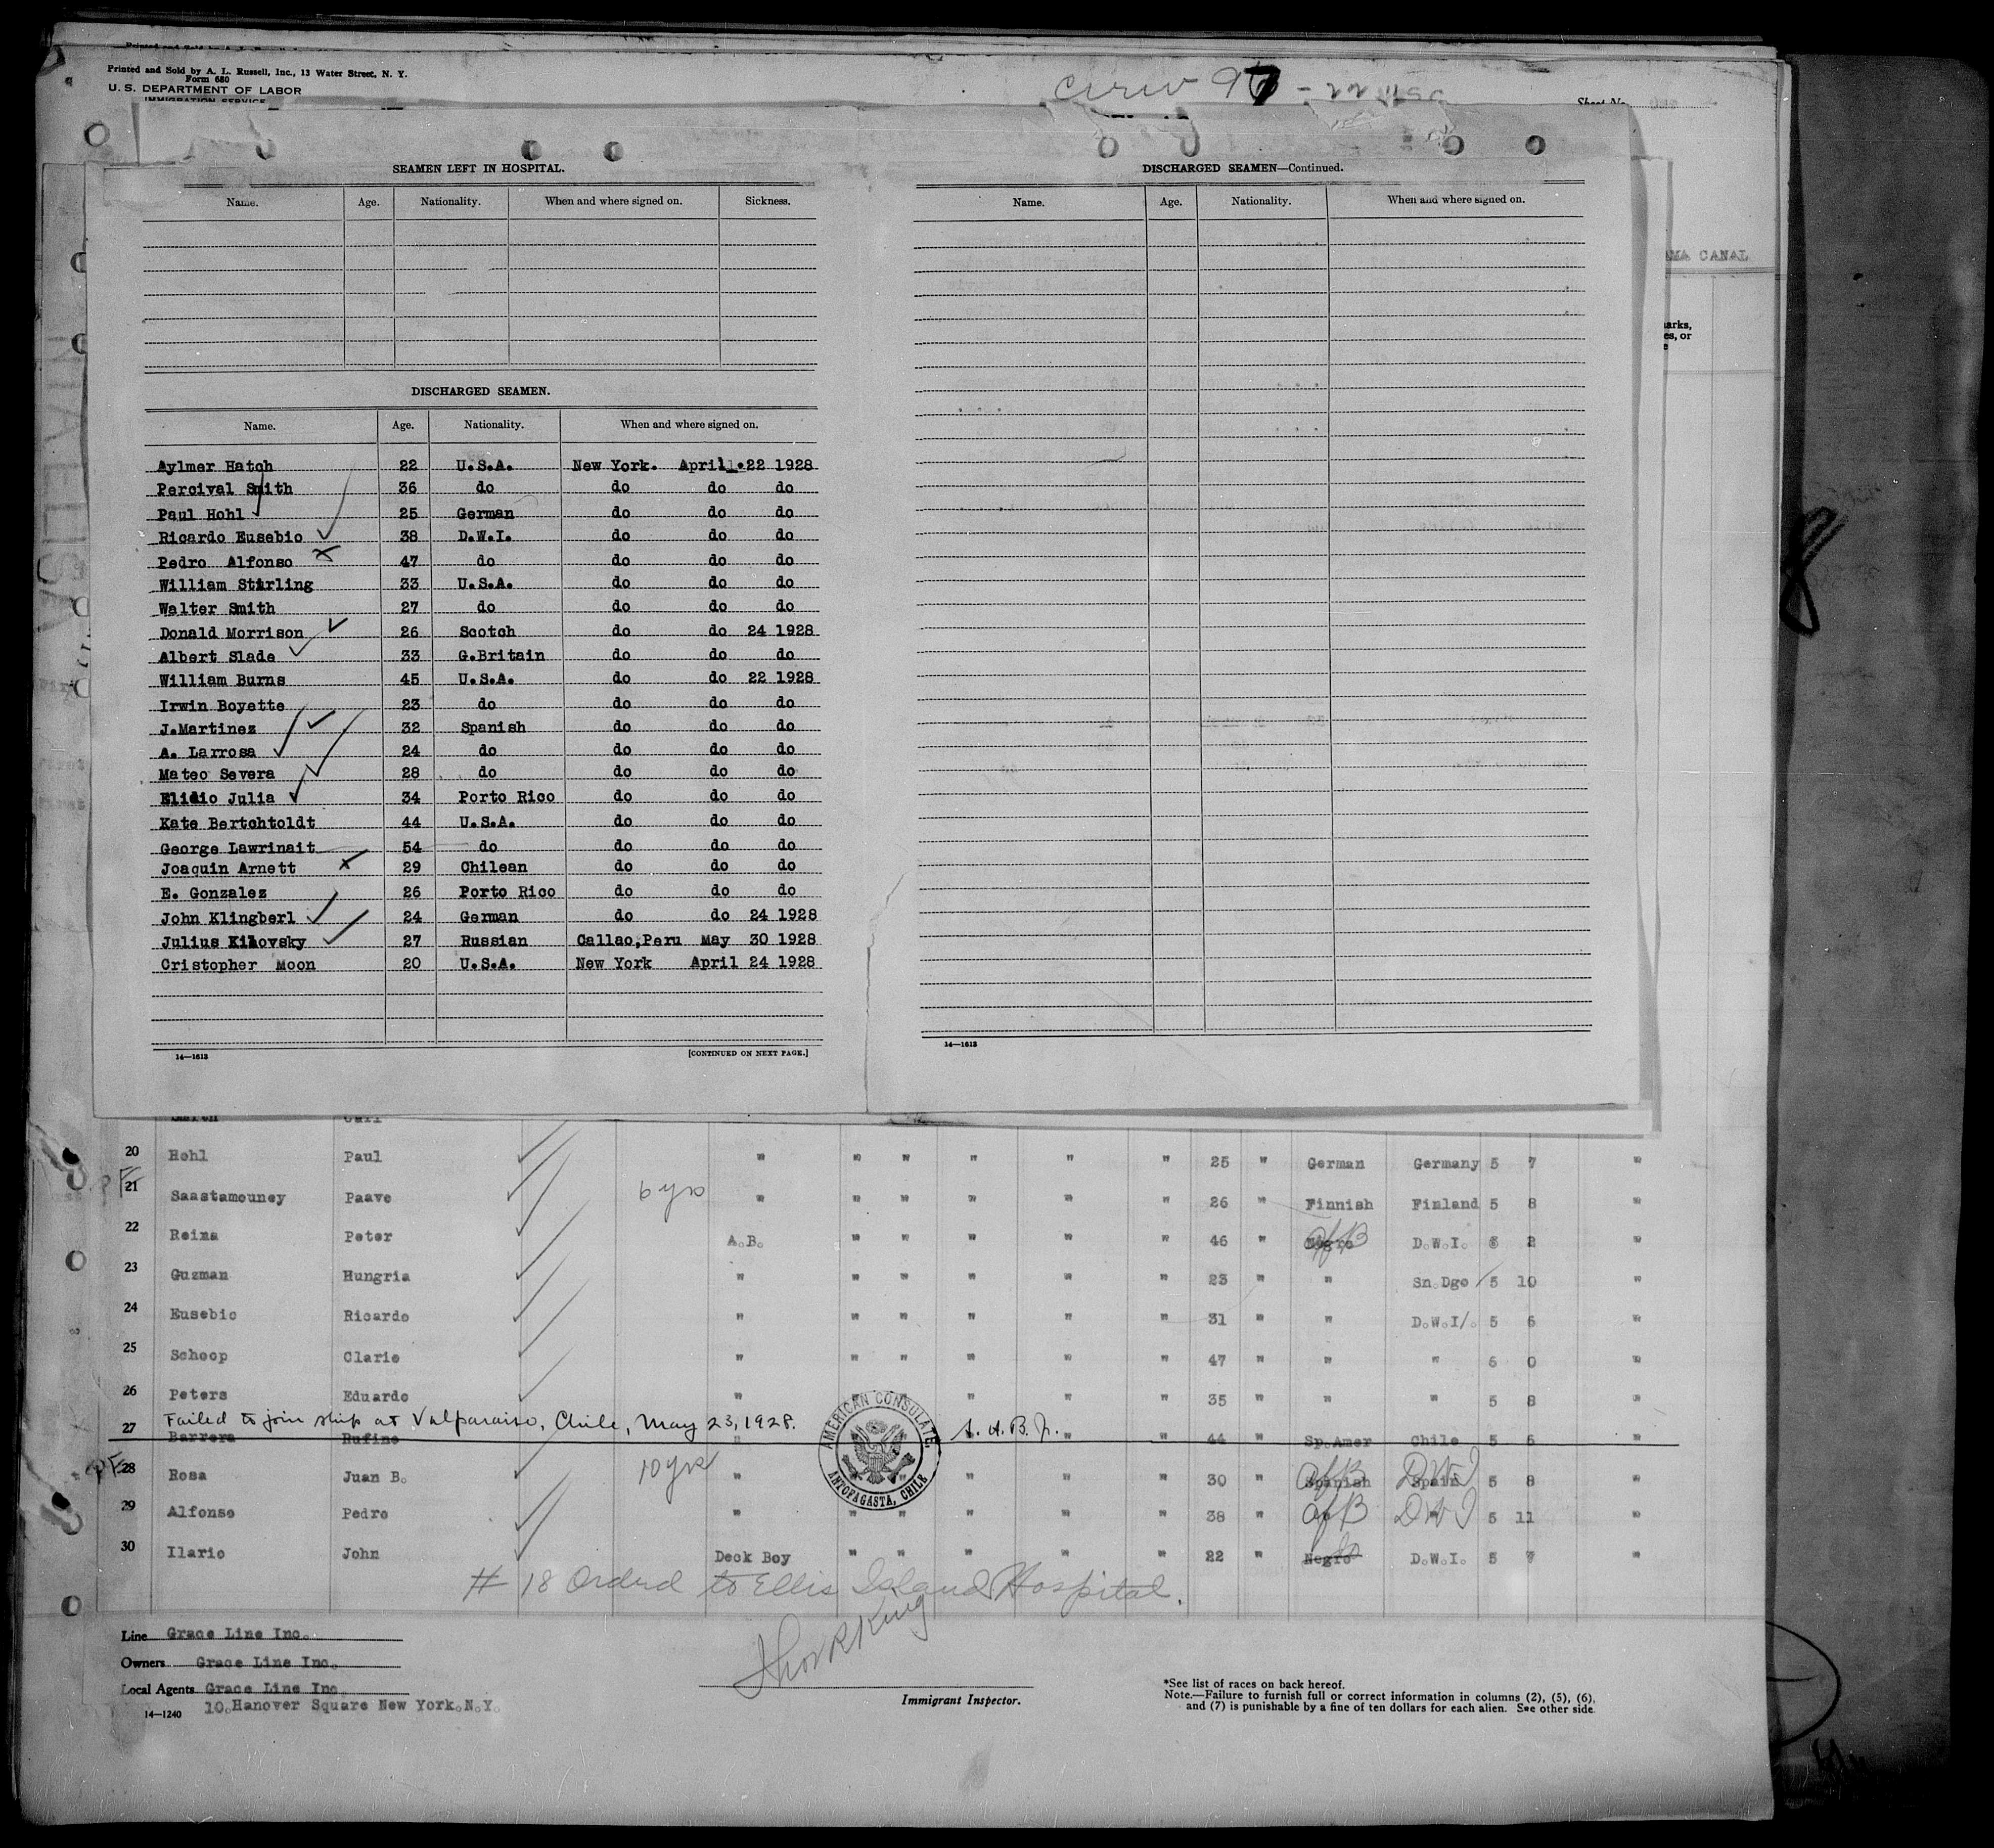 Printed and Sold by A. L. Russell, Inc., 13 Water Street, N. Y.
Form 680
U. S. DEPARTMENT OF LABOR
IMMIGRATION SERVICE
Sheet No.
AMA CANAL
arks,
es, or
SEAMEN LEFT IN HOSPITAL.
Name. Age. Nationality. When and where signed on. Sickness.
DISCHARGED SEAMEN.
Name. Age. Nationality. When and where signed on.
Aylmer Hatch 22 U.S.A. New York. April 22 1928
Percival Smith 36 do do do do
Paul Hohl 25 German do do do
Ricardo Eusebio 38 D.W.I. do do do
Pedro Alfonso 47 do do do do
William Stirling 33 U.S.A. do do do
Walter Smith 27 do do do do
Donald Morrison 26 Scotch do do 24 1928
Albert Slade 33 G.Britain do do do
William Burns 45 U.S.A. do do 22 1928
Irwin Boyette 23 do do do do
J.Martinez 32 Spanish do do do
A. Larrosa 24 do do do do
Mateo Severa 28 do do do do
Elidio Julia 34 Porto Rico do do do
Kate Bertchtoldt 44 U.S.A. do do do
George Lawrinait 54 do do do do
Joaquin Arnett 29 Chilean do do do
E. Gonzalez 26 Porto Rico do do do
John Klingberl 24 German do do 24 1928
Julius Kihovsky 27 Russian Callao,Peru May 30 1928
Cristopher Moon 20 U.S.A. New York April 24 1928
14—1613 [CONTINUED ON NEXT PAGE.]
DISCHARGED SEAMEN—Continued.
Name. Age. Nationality. When and where signed on.
14—1613
20 Hohl Paul " " " " " " 25 " German Germany 5 7 "
21 Saastamouney Paave 6 yrs " " " " " " 26 " Finnish Finland 5 8 "
22 Reina Peter A.B. " " " " " 46 " Negro Af B D.W.I. 6 2 "
23 Guzman Hungria " " " " " " 23 " " Sn.Dgo 5 10 "
24 Eusebio Ricardo " " " " " " 31 " " D.W.I/. 5 6 "
25 Schoop Clarie " " " " " " 47 " " " 6 0 "
26 Peters Eduardo " " " " 35 " " " 5 8 "
Failed to join ship at Valparaiso, Chile, May 23, 1928.
27 Barrera Rufino " " " 44 " Sp.Amer Chile 5 6 "
AMERICAN CONSULATE,
ANTOFAGASTA, CHILE
28 Rosa Juan B. 10 yrs " " " " " 30 " Spanish Af B Spain DWI 5 8 "
29 Alfonso Pedro " " " " " " 38 " Af B DWI 5 11 "
30 Ilario John Deck Boy " " " " " 22 " Negro D.W.I. 5 7 "
# 18 Orderd to Ellis Island Hospital.
Line Grace Line Inc.
Owners Grace Line Inc.
Local Agents Grace Line Inc.
10.Hanover Square New York.N.Y.
14—1240
Immigrant Inspector.
*See list of races on back hereof.
Note.—Failure to furnish full or correct information in columns (2), (5), (6),
and (7) is punishable by a fine of ten dollars for each alien. See other side.